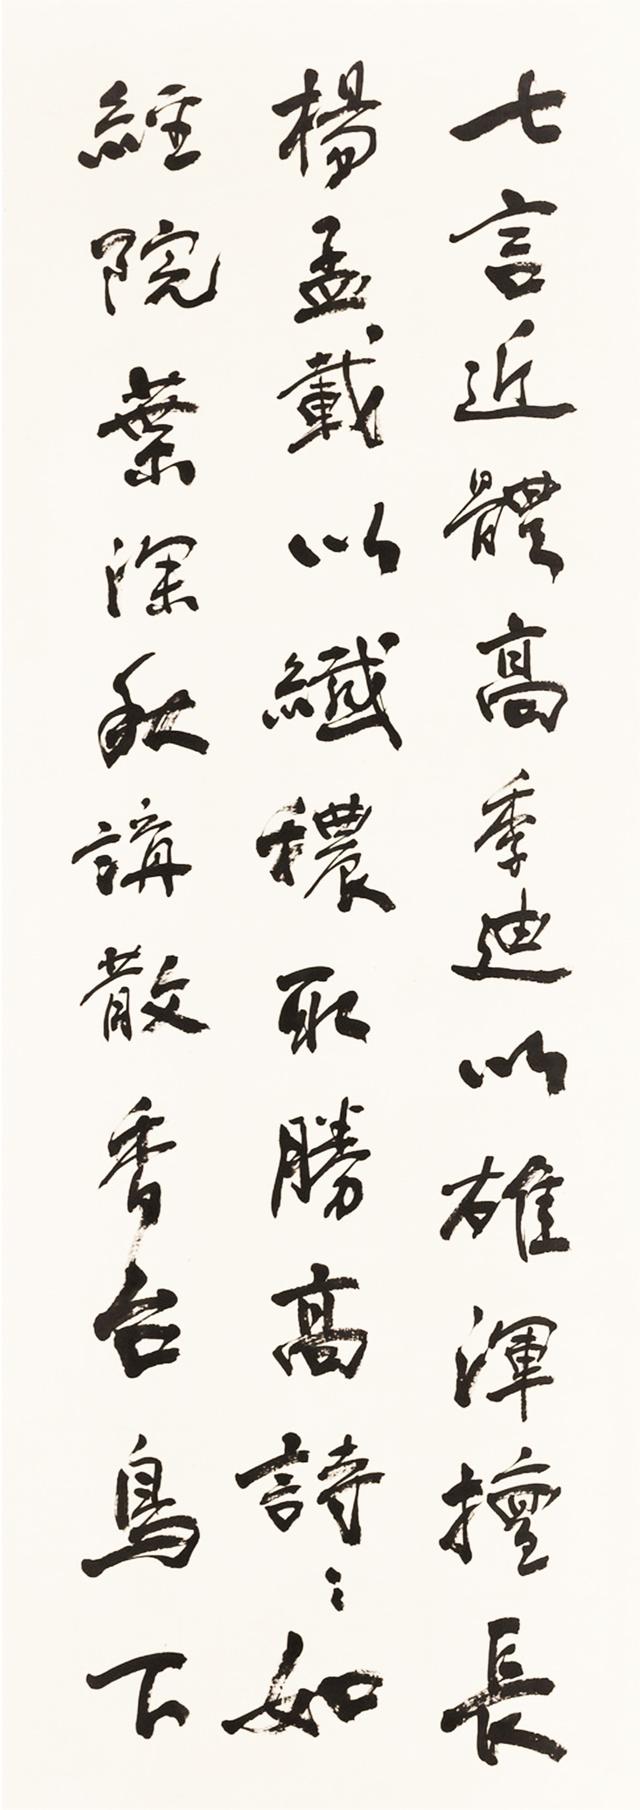 七言近體高季迪以雄渾擅長
楊孟載以纖穠取勝高詩〻如
經院葉深秋講散香台鳥下